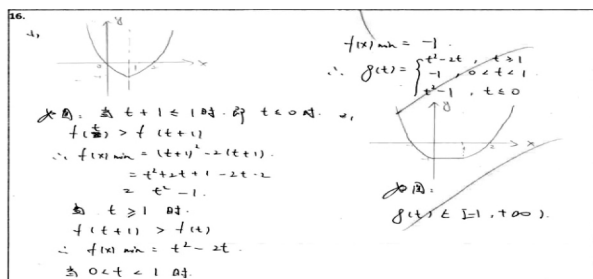 16.
1,
y
x
1
2
如图：当 t+1≤1时．即 t≤0时．
f(t) > f(t+1)
∴ f(x)min = (t+1)²-2(t+1).
= t²+2t+1-2t-2
= t²-1.
当 t≥1 时．
f(t+1) > f(t)
∴ f(x)min = t²-2t.
当 0<t<1 时.
f(x)min = -1.
∴ g(t)= { t²-2t, t≥1
-1, 0<t<1
t²-1, t≤0
2,
y
x
1
2
如图：
g(t)∈[-1,+∞).